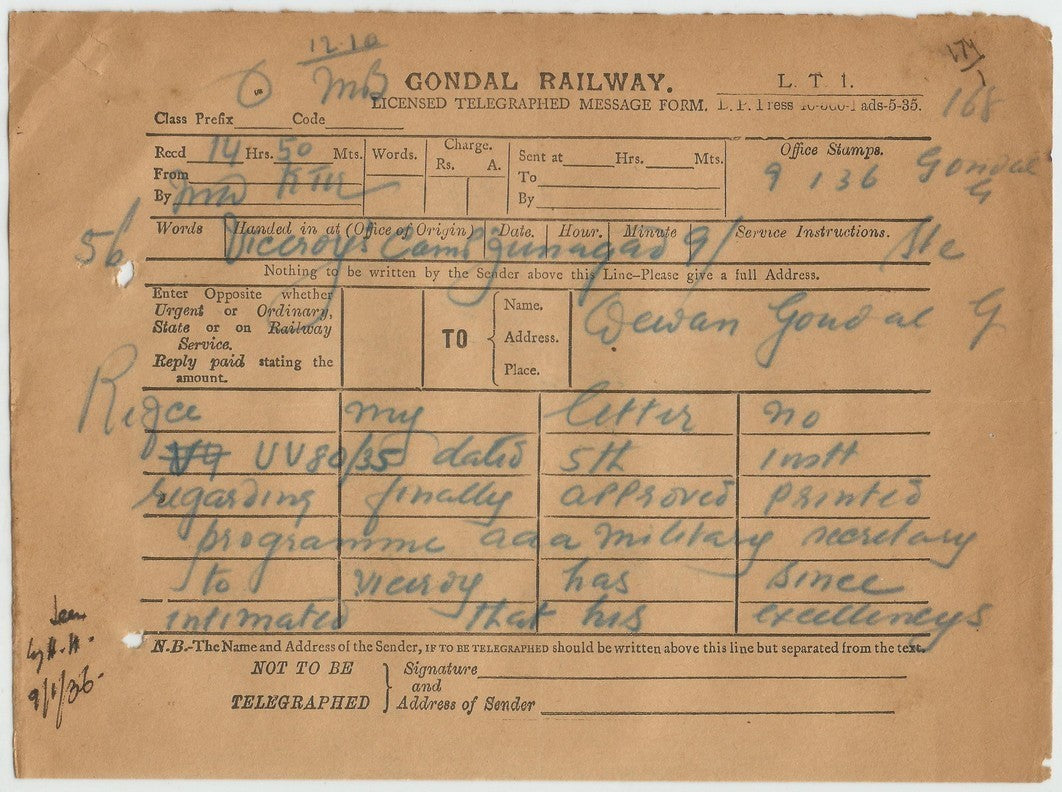 12-10
174/1
MB GONDAL RAILWAY. L. T. 1.
168
LICENSED TELEGRAPHED MESSAGE FORM. 5-35.
Class Prefix Code
Recd 14 Hrs. 50 Mts. Words. Charge. Rs. A. Sent at Hrs. Mts. Office Stamps.
From To 9 1 36 Gondal G
By By
56 Words Handed in at (Office of Origin) Date. Hour. Minute Service Instructions.
Viceroys Camp Junagad 9/ Ste
Nothing to be written by the Sender above this Line-Please give a full Address.
Enter Opposite whether Urgent or Ordinary, State or on Railway Service. Reply paid stating the amount.
TO Name. Address. Place.
Dewan Gondal G
my letter no
UV80/35 dated 5th instt
regarding finally approved printed
programme aaa military secretary
to viceroy has since
intimated that his excellencys
N.B.-The Name and Address of the Sender, IF TO BE TELEGRAPHED should be written above this line but separated from the text.
NOT TO BE TELEGRAPHED Signature and Address of Sender
Seen
by H.H.
9/1/36-